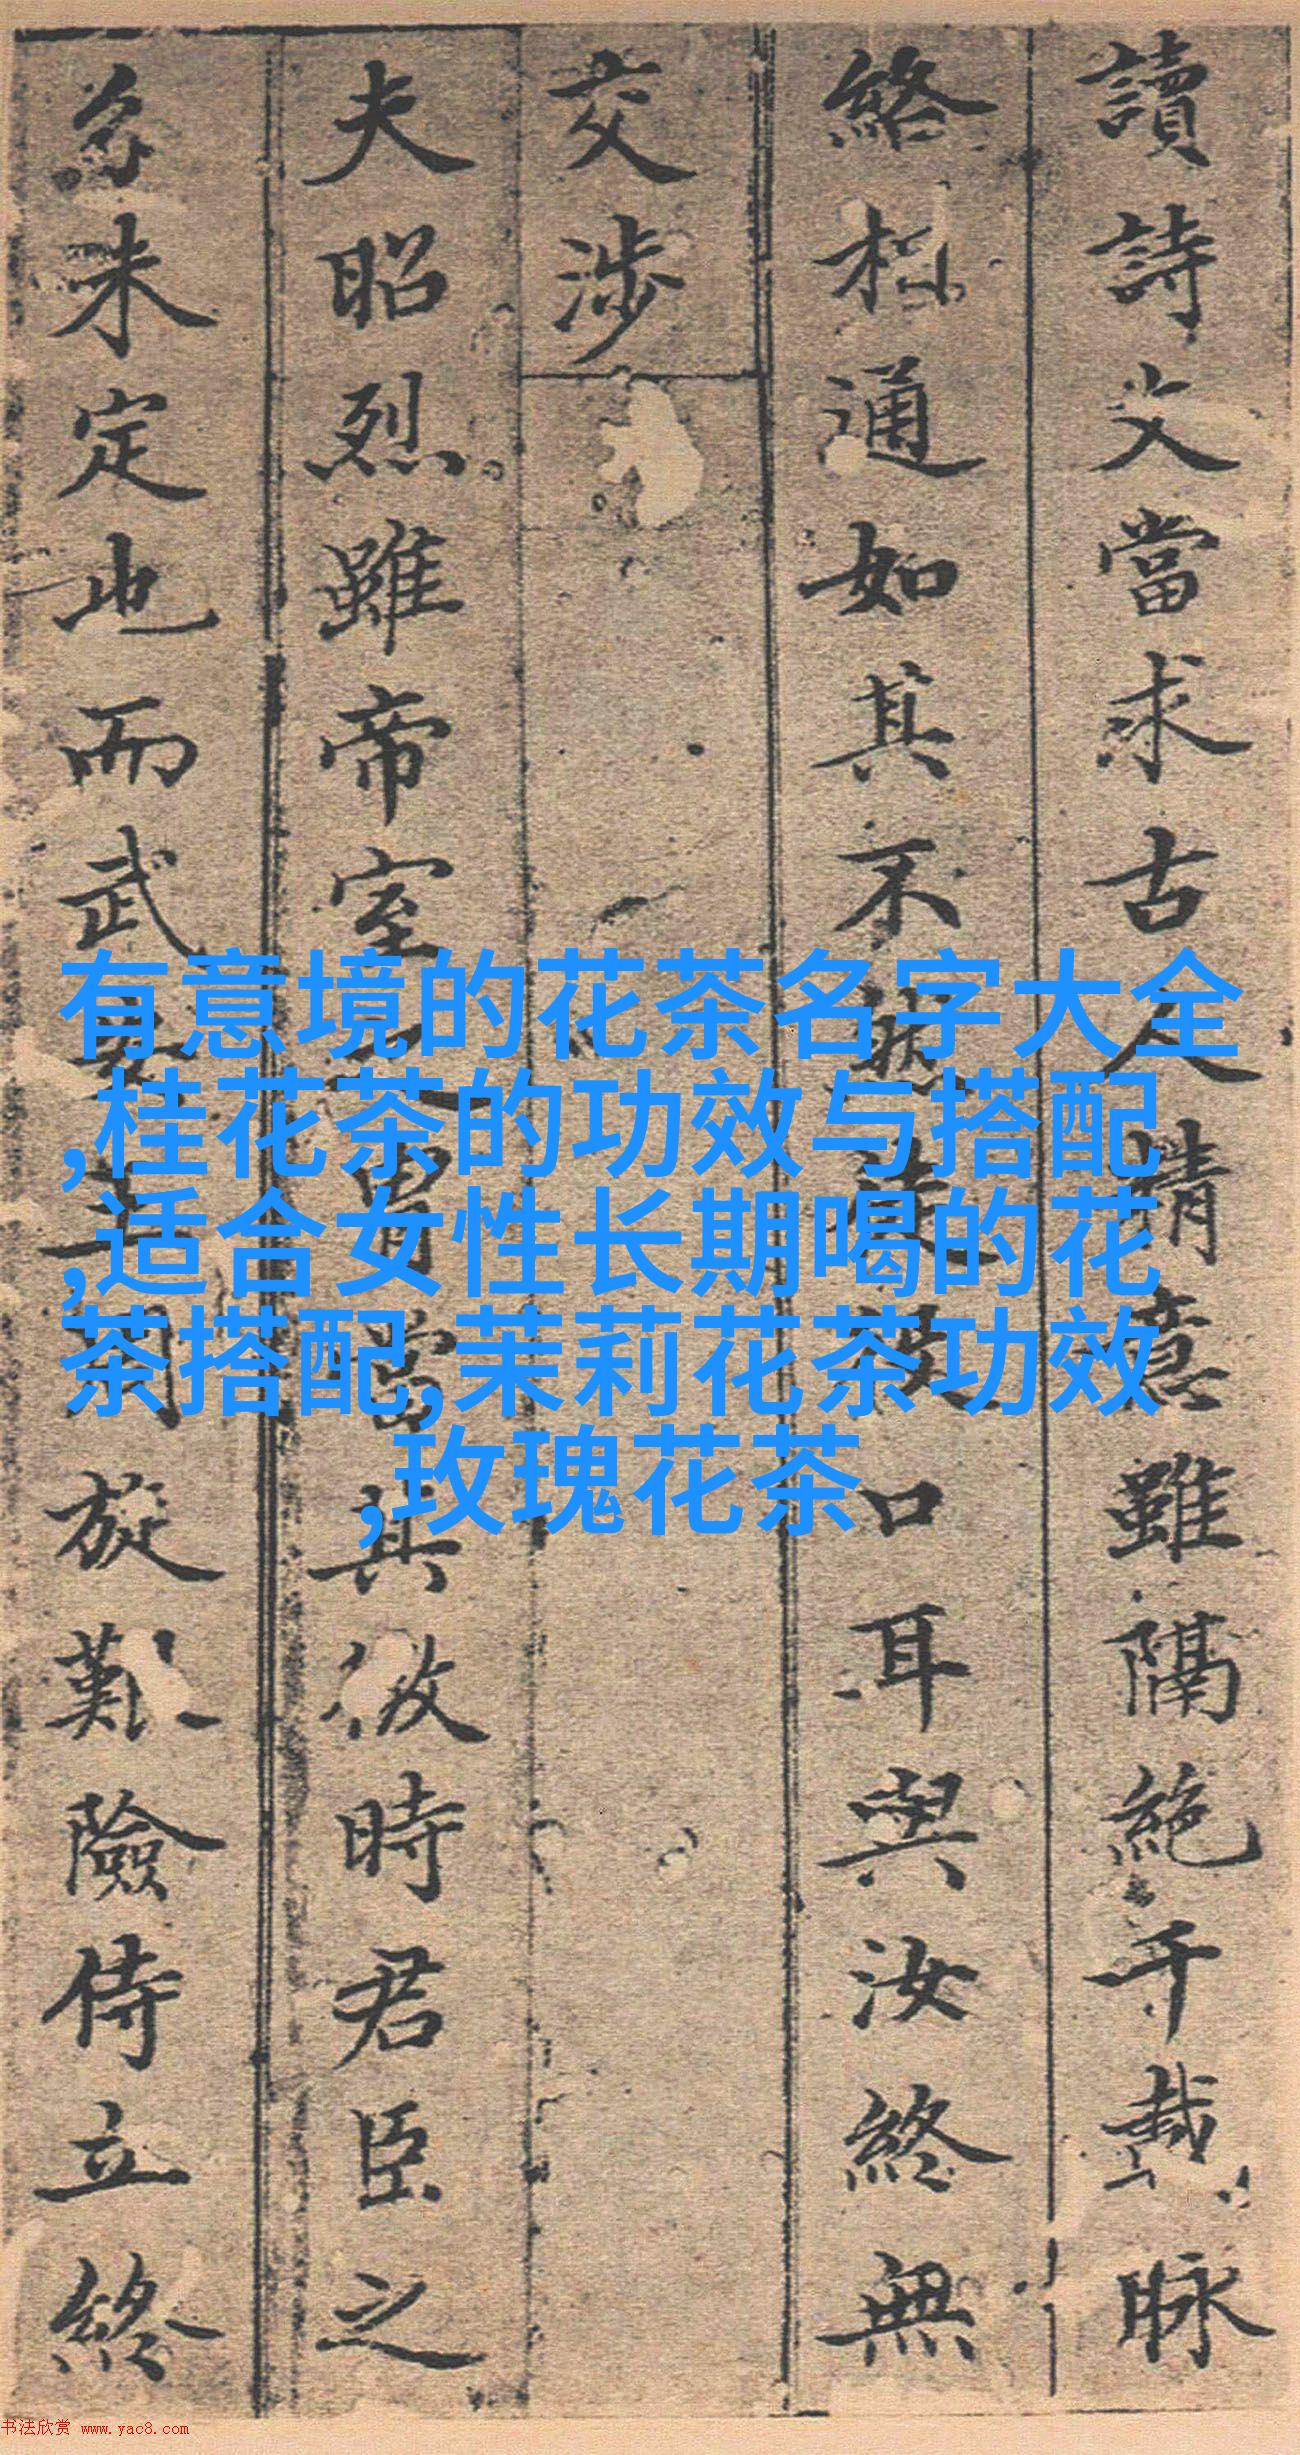 讀詩文當求古人精意雖隔絶千載脉
絡相通如其不
口耳與汝終無
交涉
夫昭烈雖帝室
胄當其微時君臣之
分未定也而武
周旋艱險侍立終
有意境的花茶名字大全
,桂花茶的功效与搭配
,适合女性长期喝的花
茶搭配,茉莉花茶功效
,玫瑰花茶
书法欣赏 www.yac8.com